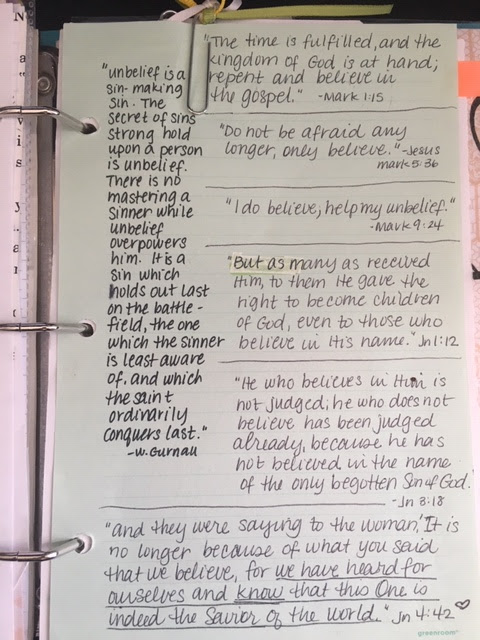 "unbelief is a
sin-making
sin. The
secret of sins
strong hold
upon a person
is unbelief.
There is no
mastering a
sinner while
unbelief
overpowers
him. It is a
sin which
holds out last
on the battle-
field, the one
which the sinner
is least aware
of, and which
the saint
ordinarily
conquers last."
-W. Gurnall
"The time is fulfilled, and the
kingdom of God is at hand;
repent and believe in
the gospel." -Mark 1:15
"Do not be afraid any
longer, only believe." -Jesus
mark 5:36
"I do believe; help my unbelief."
-Mark 9:24
"But as many as received
Him, to them He gave the
right to become children
of God, even to those who
believe in His name." Jn 1:12
"He who believes in Him is
not judged; he who does not
believe has been judged
already, because he has
not believed in the name
of the only begotten Son of God."
-Jn 3:18
"and they were saying to the woman, 'It is
no longer because of what you said
that we believe, for we have heard for
ourselves and know that this One is
indeed the Savior of the world." Jn 4:42 ♡
greenroom
N
a